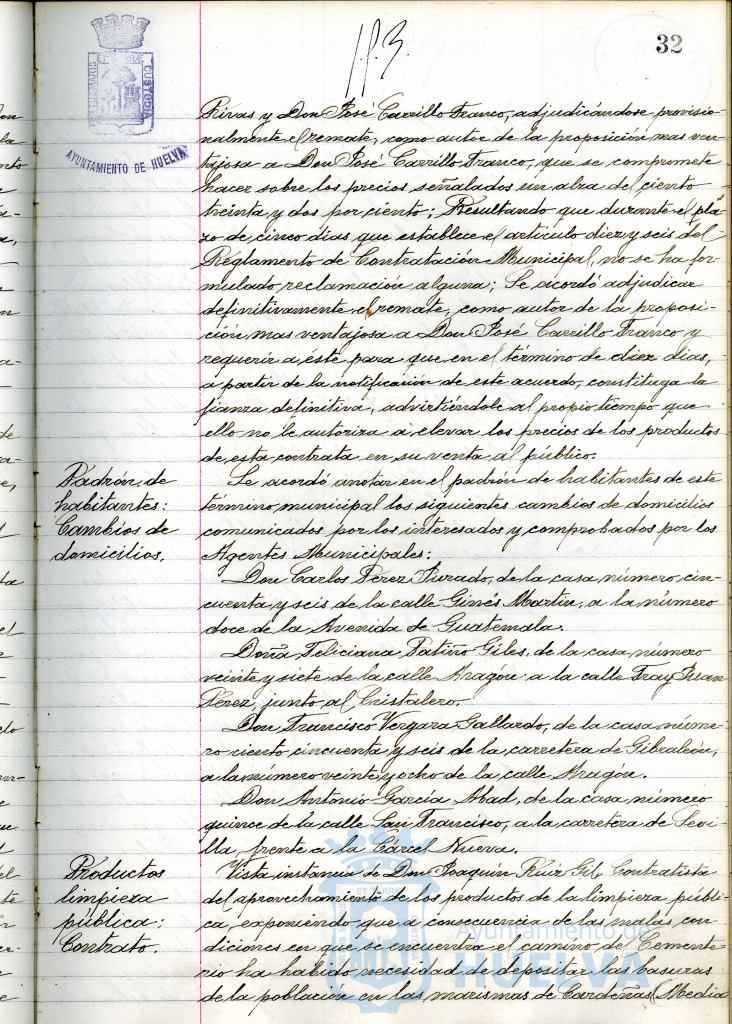 32
Rivas y Don José Carrillo Franco, adjudicándose provisio-
nalmente el remate, como autor de la proposición mas ven-
tajosa a Don José Carrillo Franco, que se compromete
hacer sobre los precios señalados un alza del ciento
treinta y dos por ciento; Resultando que durante el pla-
zo de cinco días que establece el artículo diez y seis del
Reglamento de Contratación Municipal, no se ha for-
mulado reclamación alguna; Se acordó adjudicar
definitivamente el remate, como autor de la proposi-
ción mas ventajosa a Don José Carrillo Franco y
requerir a éste para que en el término de diez días,
a partir de la notificación de este acuerdo, constituya la
fianza definitiva, advirtiéndole al propio tiempo que
ello no le autoriza a elevar los precios de los productos
de esta contrata en su venta al público.
Padrón de
habitantes:
Cambios de
domicilios.
Se acordó anotar en el padrón de habitantes de este
término municipal los siguientes cambios de domicilios
comunicados por los interesados y comprobados por los
Agentes Municipales:
Don Carlos Pérez Jurado, de la casa número cin-
cuenta y seis de la calle Ginés Martín, a la número
doce de la Avenida de Guatemala.
Doña Feliciana Patiño Giles, de la casa número
veinte y siete de la calle Aragón a la calle Fray Juan
Pérez, junto al Cristalero.
Don Francisco Vergara Gallardo, de la casa núme-
ro ciento cincuenta y seis de la carretera de Gibraleón,
a la número veinte y ocho de la calle Aragón.
Don Antonio García Abad, de la casa número
quince de la calle San Francisco, a la carretera de Sevi-
lla, frente a la Cárcel Nueva.
Productos
limpieza
pública:
Contrato.
Vista instancia de Don Joaquín Ruiz Gil, Contratista
del aprovechamiento de los productos de la limpieza públi-
ca, exponiendo que a consecuencia de las malas con-
diciones en que se encuentra el camino del Cemente-
rio ha habido necesidad de depositar las basuras
de la población en las marismas de Cardeñas (Media
AYUNTAMIENTO DE HUELVA
Ayuntamiento de
HUELVA